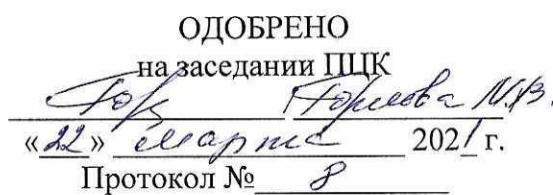 ОДОБРЕНО
на заседании ПЦК
«22» марта 2021 г.
Протокол № 8